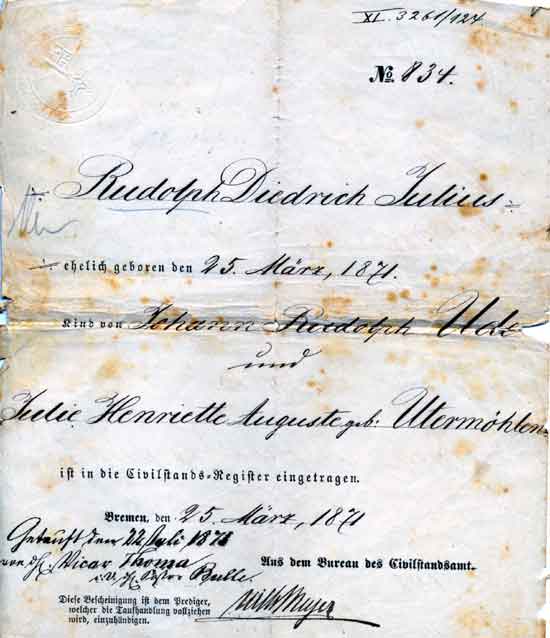 XI. 3261/124
No. 834.
Rudolph Diedrich Julius
ehelich geboren den 25. März, 1871.
Kind von Johann Rudolph
und
Julie Henriette Auguste geb: Utermöhlen
ist in die Civilstands-Register eingetragen.
Bremen, den 25. März, 1871
Getauft den 22. Juli 1871
Vicar Thoma
Aus dem Bureau des Civilstandsamt.
Pastor Bulle.
Diese Bescheinigung ist dem Prediger,
welcher die Taufhandlung vollziehen
wird, einzuhändigen.